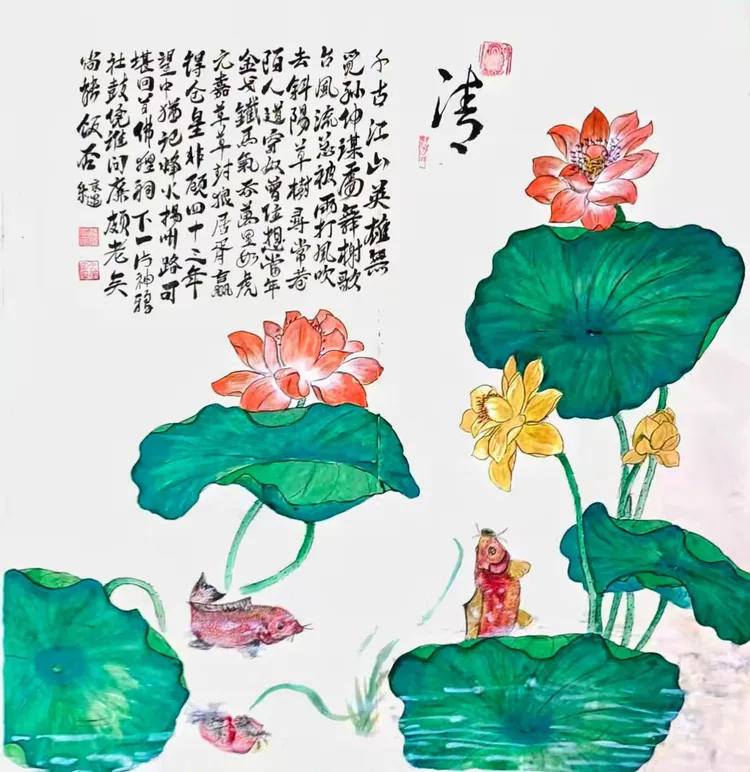 清
千古江山英雄無
覓孫仲謀處舞榭歌
台風流总被雨打風吹
去斜陽草樹尋常巷
陌人道寄奴曾住想當年
金戈鐵馬氣吞萬里如虎
元嘉草草封狼居胥贏
得仓皇北顧四十三年
望中猶記烽火揚州路可
堪回首佛狸祠下一片神鴉
社鼓憑誰問廉頗老矣
尚能飯否